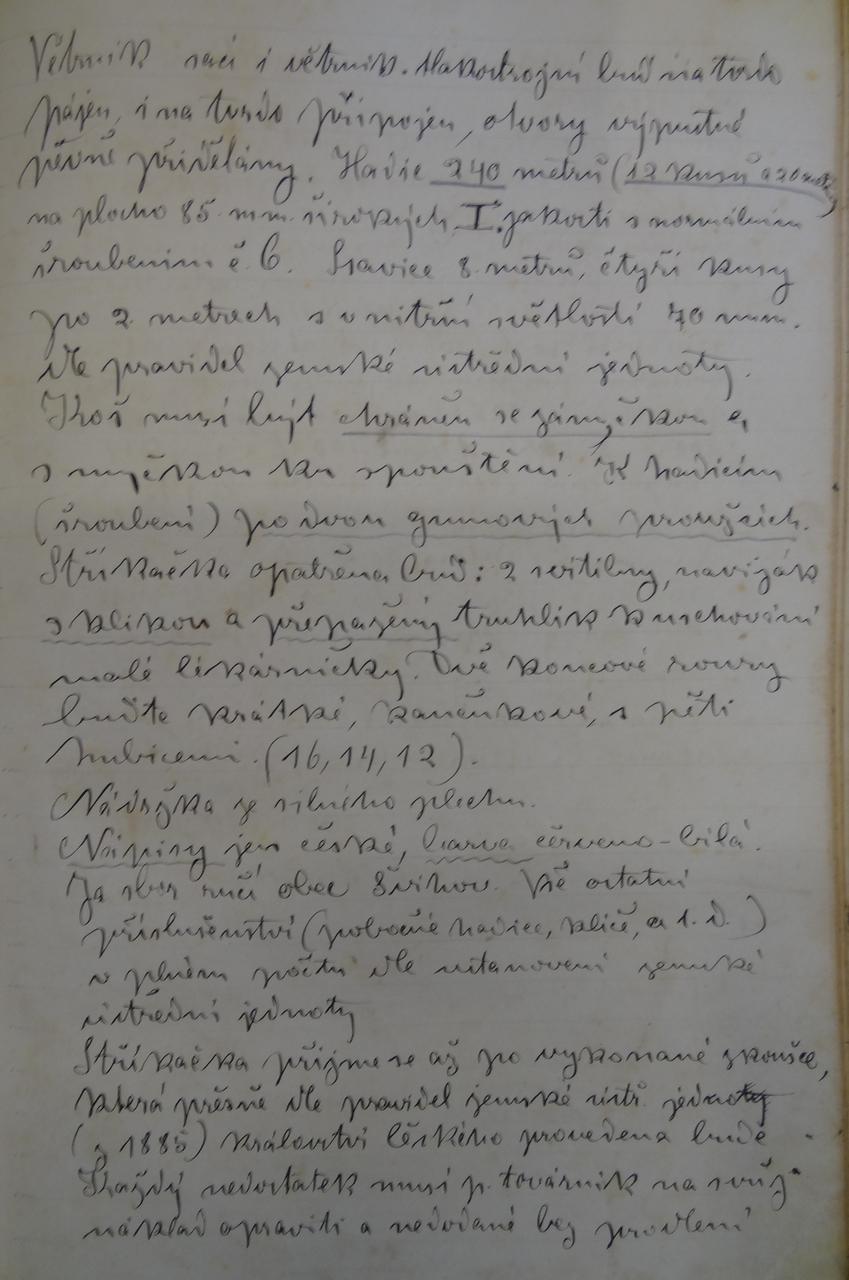 Větrník sací i větrník tlakostrojní buď na tvrdo
pájen, i na tvrdo připojen, otvory výpustné
pěvně přidělány. Hadic 240 metrů (12 kusů a 20 met.)
na plocho 85 m.m. širokých I. jakosti s normálním
šroubením č 6. Savice 8 metrů, čtyři kusy
po 2 metrech s vnitřní světlostí 70 mm.
dle pravidel zemské ústřední jednoty.
Koš musí býti chráněn se zámečkou a
s ku spouštění. K hadicím
(šroubení) po dvou gumových proužcích.
Stříkačka opatřena buď: 2 svítilny, naviják
s klikou a přepažený truhlík k uschování
malé lékárničky. Dvě koncové roury
buďte krátké, kančukové, s pěti
hubicemi. (16, 14, 12).
Nádržka ze silného plechu.
Nápisy jen české, barva červeno-bílá.
Za sbor ručí obec Švihov. Vše ostatní
příslušenství (pobočné hadice, klíče, a t. d.)
v plném počtu dle ustanovení zemské
ústřední jednoty
Stříkačka přijme se až po vykonané zkoušce,
která přesně dle pravidel zemské ústř. jednoty
(z 1885) království Českého provedena bude
Každý nedostatek musí p. továrník na svůj
náklad opraviti a nedodané bez prodlení